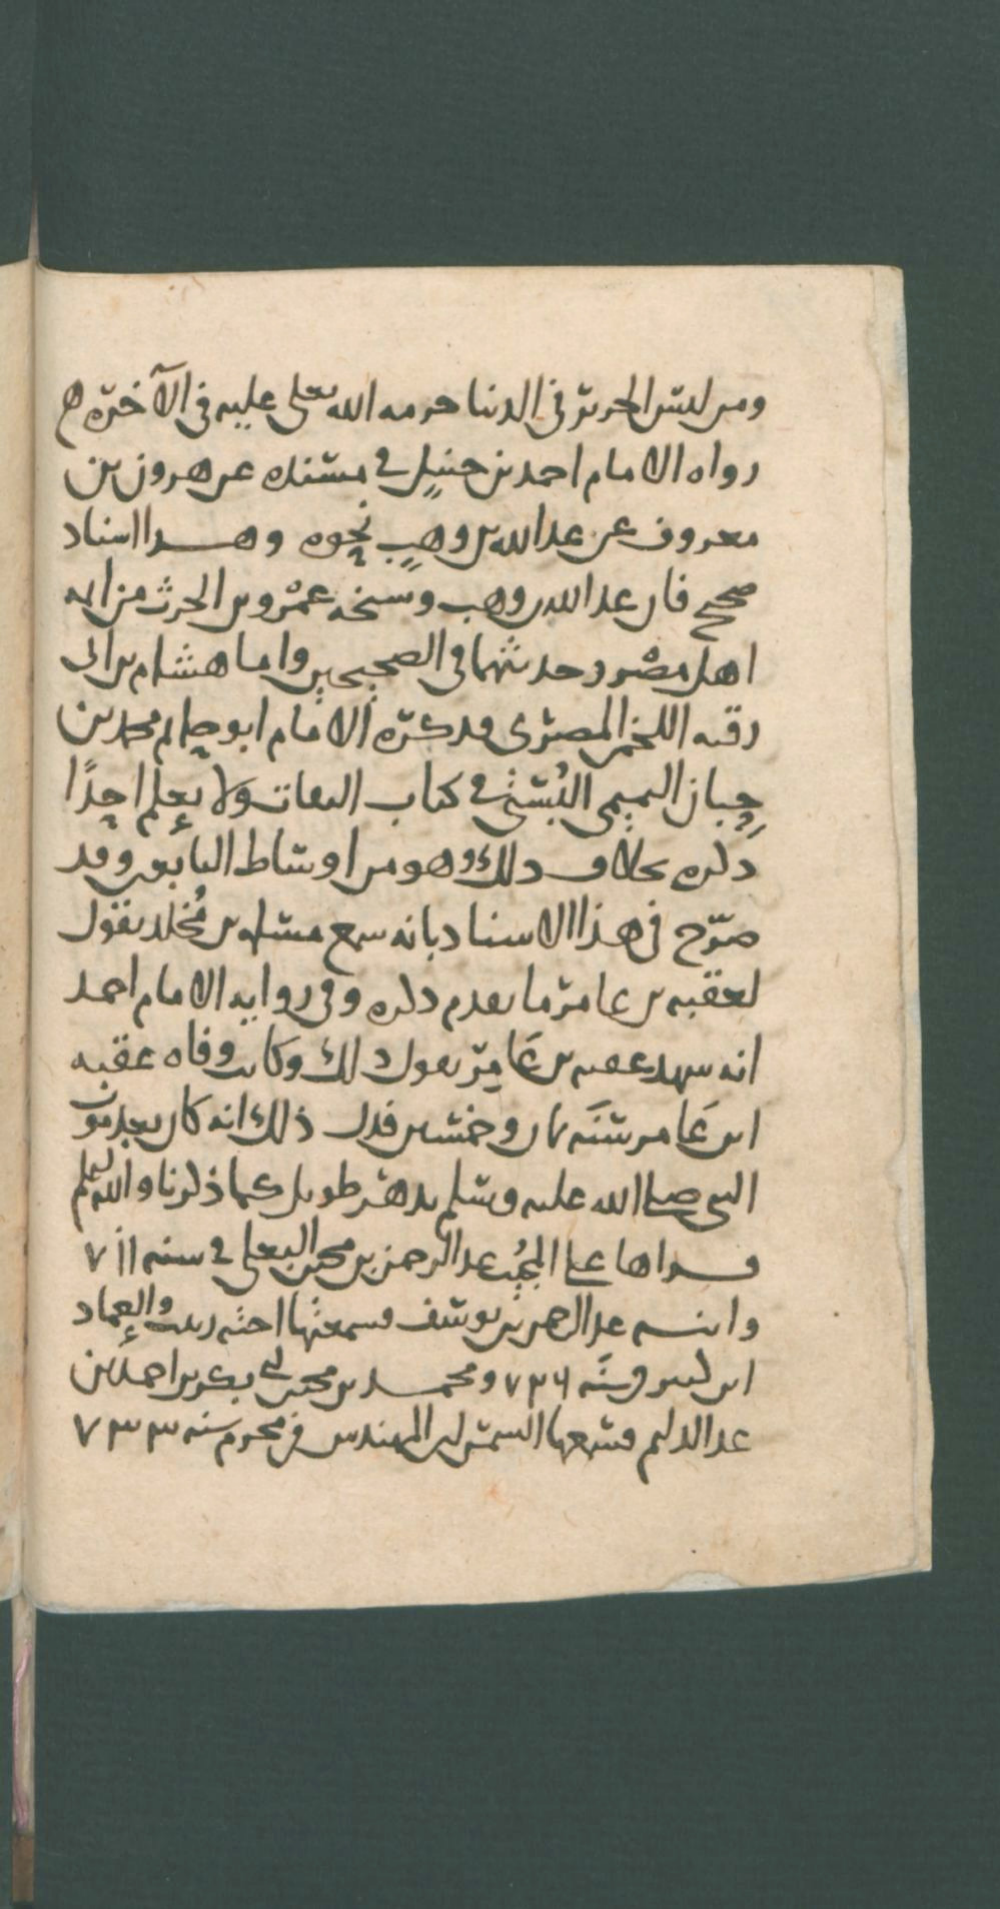 ومن لبس الحرير في الدنيا حرمه الله تعلى عليه في الآخرة ه
رواه الامام احمد بن حنبل في مسنده عن هرون بن
معروف عن عبد الله بن وهب نحوه وهذا اسناد
صحيح فان عبد الله بن وهب وشيخه عمرو بن الحرث من ايمه
اهل مصر وحديثهما في الصحيحين واما هشام بن ابى
رقيه اللخمي المصرى فذكره الامام ابو حاتم محمد بن
حبان التميمى البستي في كتاب الثقات ولا يعلم احدًا
ذكره بخلاف ذلك وهو من اوساط التابعين وقد
صرّح في هذا الاسناد بانه سمع مسلمه بن مُخلد يقول
لعقبه بن عامر ما تقدم ذكره وفي روايه الامام احمد
انه شهد عقبه بن عَامِر يقول ذلك وكانت وفاه عقبه
ابن عَامر سنَه ثمان وخمسين فدل ذلك انه كان بعد موت
النبى صلى الله عليه وسلم بدهر طويل كما ذكرنا والله اعلم
قراها على المُحب عبد الرحمن بن محمد البعلى في سنه ٧١١
وابنه عبد الرحمن بن يوسف فسمعتها اخته زينب والعماد
ابن كثير في سنَه ٧٣٦ ومحمد بن محمد بن ابي بكر بن احمد بن
عبد الدايم فسمعها الشمس ابن المهندس في محرم سنه ٧٣٣